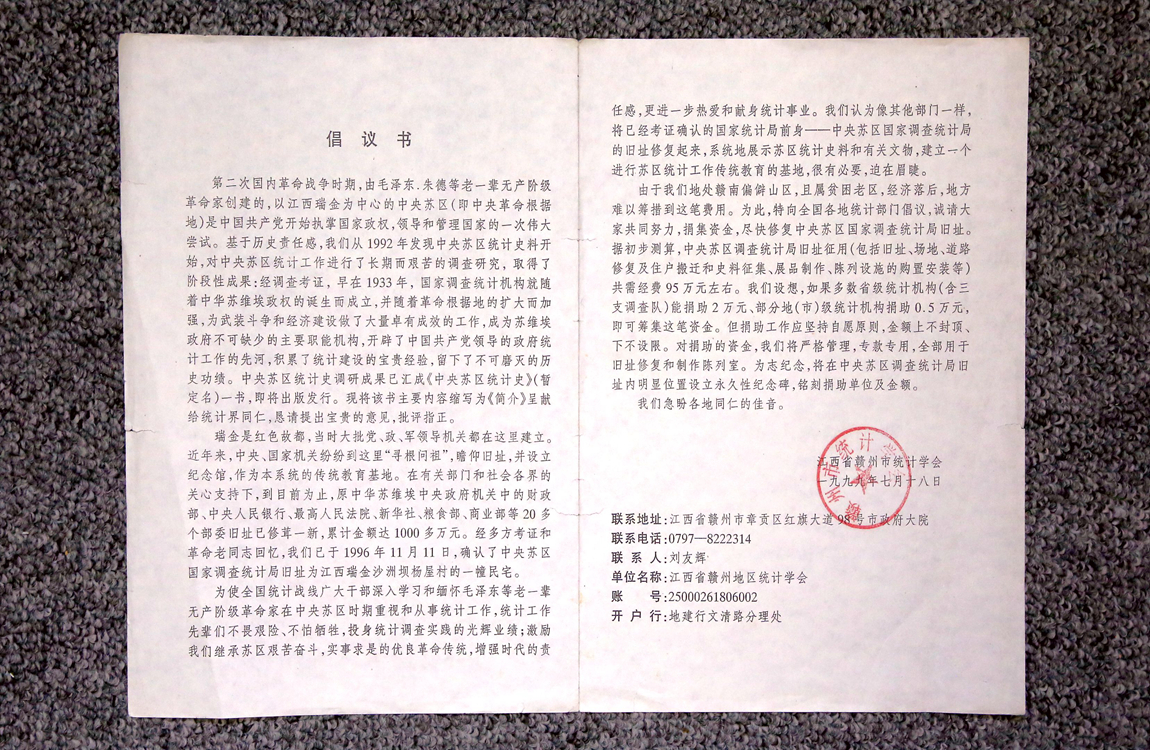 倡议书
第二次国内革命战争时期,由毛泽东、朱德等老一辈无产阶级
革命家创建的,以江西瑞金为中心的中央苏区(即中央革命根据
地)是中国共产党开始执掌国家政权,领导和管理国家的一次伟大
尝试。基于历史责任感,我们从1992年发现中央苏区统计史料开
始,对中央苏区统计工作进行了长期而艰苦的调查研究,取得了
阶段性成果:经调查考证,早在1933年,国家调查统计机构就随
着中华苏维埃政权的诞生而成立,并随着革命根据地的扩大而加
强,为武装斗争和经济建设做了大量卓有成效的工作,成为苏维埃
政府不可缺少的主要职能机构,开辟了中国共产党领导的政府统
计工作的先河,积累了统计建设的宝贵经验,留下了不可磨灭的历
史功绩。中央苏区统计史调研成果已汇成《中央苏区统计史》(暂
定名)一书,即将出版发行。现将该书主要内容缩写为《简介》呈献
给统计界同仁,恳请提出宝贵的意见,批评指正。
瑞金是红色故都,当时大批党、政、军领导机关都在这里建立。
近年来,中央、国家机关纷纷到这里“寻根问祖”,瞻仰旧址,并设立
纪念馆,作为本系统的传统教育基地。在有关部门和社会各界的
关心支持下,到目前为止,原中华苏维埃中央政府机关中的财政
部、中央人民银行、最高人民法院、新华社、粮食部、商业部等20多
个部委旧址已修葺一新,累计金额达1000多万元。经多方考证和
革命老同志回忆,我们已于1996年11月11日,确认了中央苏区
国家调查统计局旧址为江西瑞金沙洲坝杨屋村的一幢民宅。
为使全国统计战线广大干部深入学习和缅怀毛泽东等老一辈
无产阶级革命家在中央苏区时期重视和从事统计工作,统计工作
先辈们不畏艰险、不怕牺牲,投身统计调查实践的光辉业绩;激励
我们继承苏区艰苦奋斗,实事求是的优良革命传统,增强时代的责
任感,更进一步热爱和献身统计事业。我们认为像其他部门一样,
将已经考证确认的国家统计局前身——中央苏区国家调查统计局
的旧址修复起来,系统地展示苏区统计史料和有关文物,建立一个
进行苏区统计工作传统教育的基地,很有必要,迫在眉睫。
由于我们地处赣南偏僻山区,且属贫困老区,经济落后,地方
难以筹措到这笔费用。为此,特向全国各地统计部门倡议,诚请大
家共同努力,捐集资金,尽快修复中央苏区国家调查统计局旧址。
据初步测算,中央苏区调查统计局旧址征用(包括旧址、场地、道路
修复及住户搬迁和史料征集、展品制作、陈列设施的购置安装等)
共需经费95万元左右。我们设想,如果多数省级统计机构(含三
支调查队)能捐助2万元、部分地(市)级统计机构捐助0.5万元,
即可筹集这笔资金。但捐助工作应坚持自愿原则,金额上不封顶、
下不设限。对捐助的资金,我们将严格管理,专款专用,全部用于
旧址修复和制作陈列室。为志纪念,将在中央苏区调查统计局旧
址内明显位置设立永久性纪念碑,铭刻捐助单位及金额。
我们急盼各地同仁的佳音。
江西省赣州市统计学会
一九九九年七月十八日
赣州市统计学会
联系地址:江西省赣州市章贡区红旗大道98号市政府大院
联系电话:0797—8222314
联系人:刘友辉
单位名称:江西省赣州地区统计学会
账号:25000261806002
开户行:地建行文清路分理处